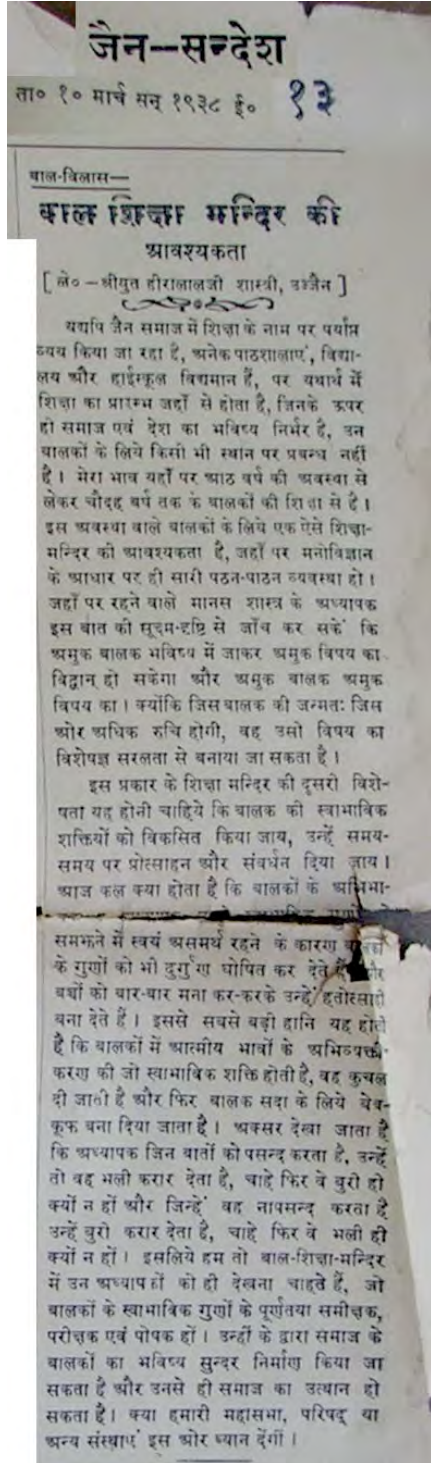 जैन—सन्देश
ता० १० मार्च सन् १९३८ ई० १३
बाल-विलास—
बाल शिक्षा मन्दिर की
आवश्यकता
[ ले० – श्रीयुत हीरालालजी शास्त्री, उज्जैन ]
यद्यपि जैन समाज में शिक्षा के नाम पर पर्याप्त
व्यय किया जा रहा है, अनेक पाठशालाएं, विद्या-
लय और हाईस्कूल विद्यमान हैं, पर यथार्थ में
शिक्षा का प्रारम्भ जहाँ से होता है, जिनके ऊपर
ही समाज एवं देश का भविष्य निर्भर है, उन
बालकों के लिये किसी भी स्थान पर प्रबन्ध नहीं
है । मेरा भाव यहाँ पर आठ वर्ष की अवस्था से
लेकर चौदह वर्ष तक के बालकों की शिक्षा से है ।
इस अवस्था वाले बालकों के लिये एक ऐसे शिक्षा-
मन्दिर की आवश्यकता है, जहाँ पर मनोविज्ञान
के आधार पर ही सारी पठन-पाठन व्यवस्था हो ।
जहाँ पर रहने वाले मानस शास्त्र के अध्यापक
इस बात की सूक्ष्म-दृष्टि से जाँच कर सकें कि
अमुक बालक भविष्य में जाकर अमुक विषय का
विद्वान् हो सकेगा और अमुक बालक अमुक
विषय का । क्योंकि जिस बालक की जन्मत: जिस
ओर अधिक रुचि होगी, वह उसी विषय का
विशेषज्ञ सरलता से बनाया जा सकता है ।
इस प्रकार के शिक्षा मन्दिर की दूसरी विशे-
षता यह होनी चाहिये कि बालक की स्वाभाविक
शक्तियों को विकसित किया जाय, उन्हें समय-
समय पर प्रोत्साहन और संवर्धन दिया जाय ।
आज कल क्या होता है कि बालकों के अभिभा-
समझने में स्वयं असमर्थ रहने के कारण बालकों
के गुणों को भी दुर्गुण घोषित कर देते हैं और
बच्चों को बार-बार मना कर-करके उन्हें हतोत्साही
बना देते हैं । इससे सबसे बड़ी हानि यह होती
है कि बालकों में आत्मीय भावों के अभिव्यक्ती-
करण की जो स्वाभाविक शक्ति होती है, वह कुचल
दी जाती है और फिर बालक सदा के लिये बेव-
कूफ बना दिया जाता है । अक्सर देखा जाता है
कि अध्यापक जिन बातों को पसन्द करता है, उन्हें
तो वह भली करार देता है, चाहे फिर वे बुरी ही
क्यों न हों और जिन्हें वह नापसन्द करता है
उन्हें बुरी करार देता है, चाहे फिर वे भली ही
क्यों न हों । इसलिये हम तो बाल-शिक्षा-मन्दिर
में उन अध्यापकों को ही देखना चाहते हैं, जो
बालकों के स्वाभाविक गुणों के पूर्णतया समीक्षक,
परीक्षक एवं पोषक हों । उन्हीं के द्वारा समाज के
बालकों का भविष्य सुन्दर निर्माण किया जा
सकता है और उनसे ही समाज का उत्थान हो
सकता है । क्या हमारी महासभा, परिषद् या
अन्य संस्थाएं इस ओर ध्यान देंगीं ।